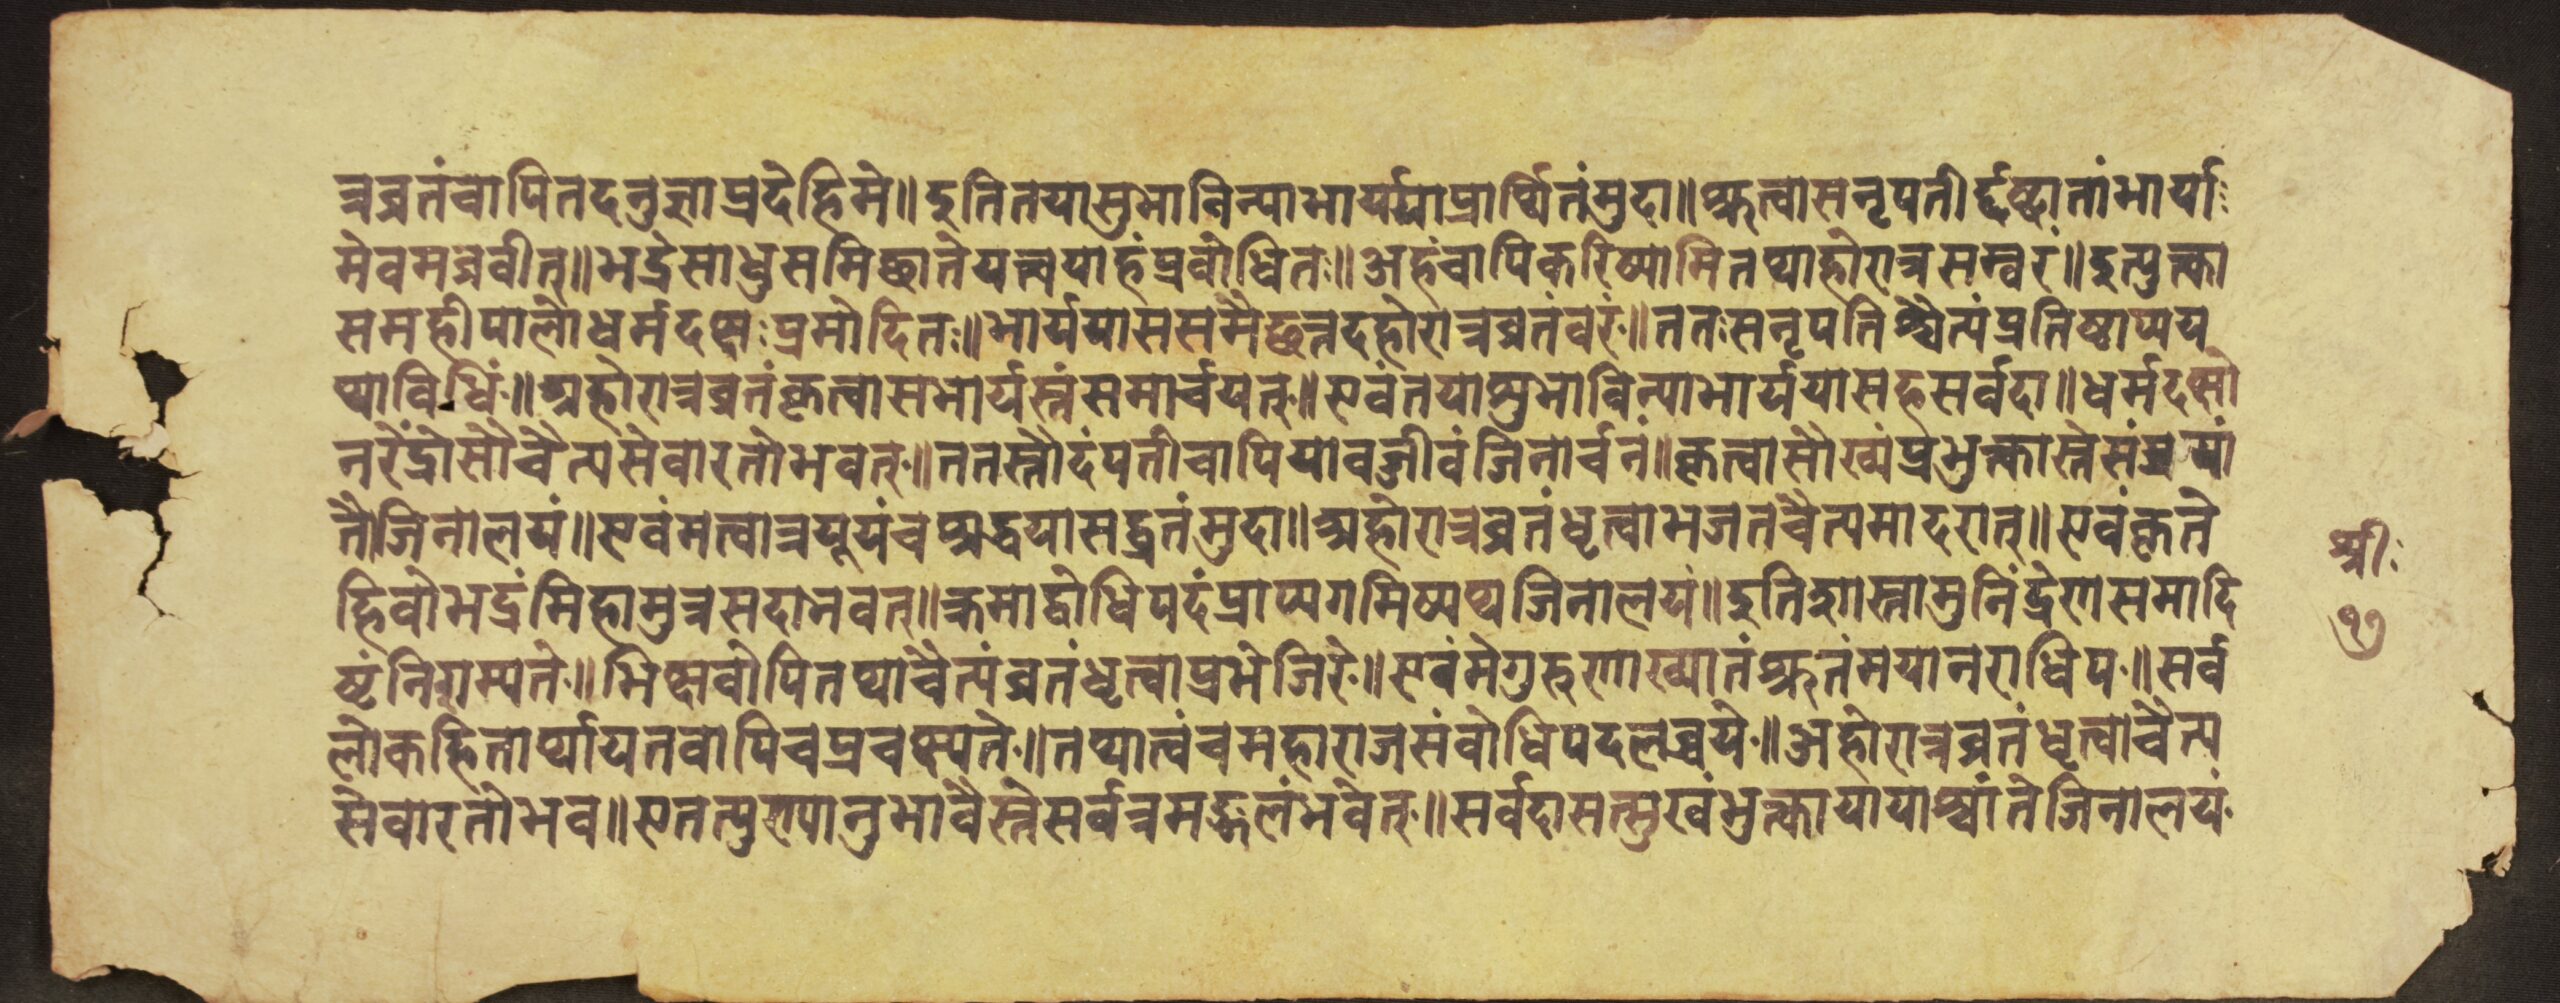 त्रव्रतंचापितदनुज्ञाप्रदेहिमे॥इतितयासुभाविन्याभार्ययाप्रार्थितंमुदा॥श्रुत्वासनृपतीर्दृष्ट्वातांभार्या
मेवमब्रवीत्॥भद्रेसाधुसमिच्छातेयत्त्वयाहंप्रबोधितः॥अहंचापिकरिष्यामितथाहोरात्रसम्वरं॥इत्युक्त्वा
समहीपालोधर्मदक्षःप्रमोदितः॥भार्ययाससमैच्छत्तदहोरात्रव्रतंवरं॥ततःसनृपतिश्चैत्यंप्रतिष्ठाप्यय
थाविधिं॥अहोरात्रव्रतंकृत्वासभार्यस्तंसमार्चयत्॥एवंतयासुभाविन्याभार्ययासहसर्वदा॥धर्मदक्षो
नरेंद्रोसौचैत्यसेवारतोभवत्॥ततस्तौदंपतीचापियावज्जीवंजिनार्चनं॥कृत्वासौख्यंप्रभुक्त्वास्तेसंप्रयां
तौजिनालयं॥एवंमत्वात्रयूयंचश्रद्धयासद्व्रतंमुदा॥अहोरात्रव्रतंधृत्वाभजतचैत्यमादरात्॥एवंकृते
हिवोभद्रंमिहामुत्रसदाभवत्॥क्रमाद्बोधिपदंप्राप्यगमिष्यथजिनालयं॥इतिशास्तामुनिंद्रेणसमादि
ष्टंनिशम्यते॥भिक्षवोपितथाचैत्यंव्रतंधृत्वाप्रभेजिरे॥एवंमेगुरुणाख्यातंश्रुतंमयानराधिप॥सर्व
लोकहितार्थायतवापिचप्रचक्ष्यते॥तथात्वंचमहाराजसंबोधिपदलब्धये॥अहोरात्रव्रतंधृत्वाचैत्य
सेवारतोभव॥एतत्पुण्यानुभावैस्तेसर्वत्रमङ्गलंभवेत्॥सर्वदासत्सुखंभुक्त्वायायाश्चांतेजिनालयं
श्रीः
१७